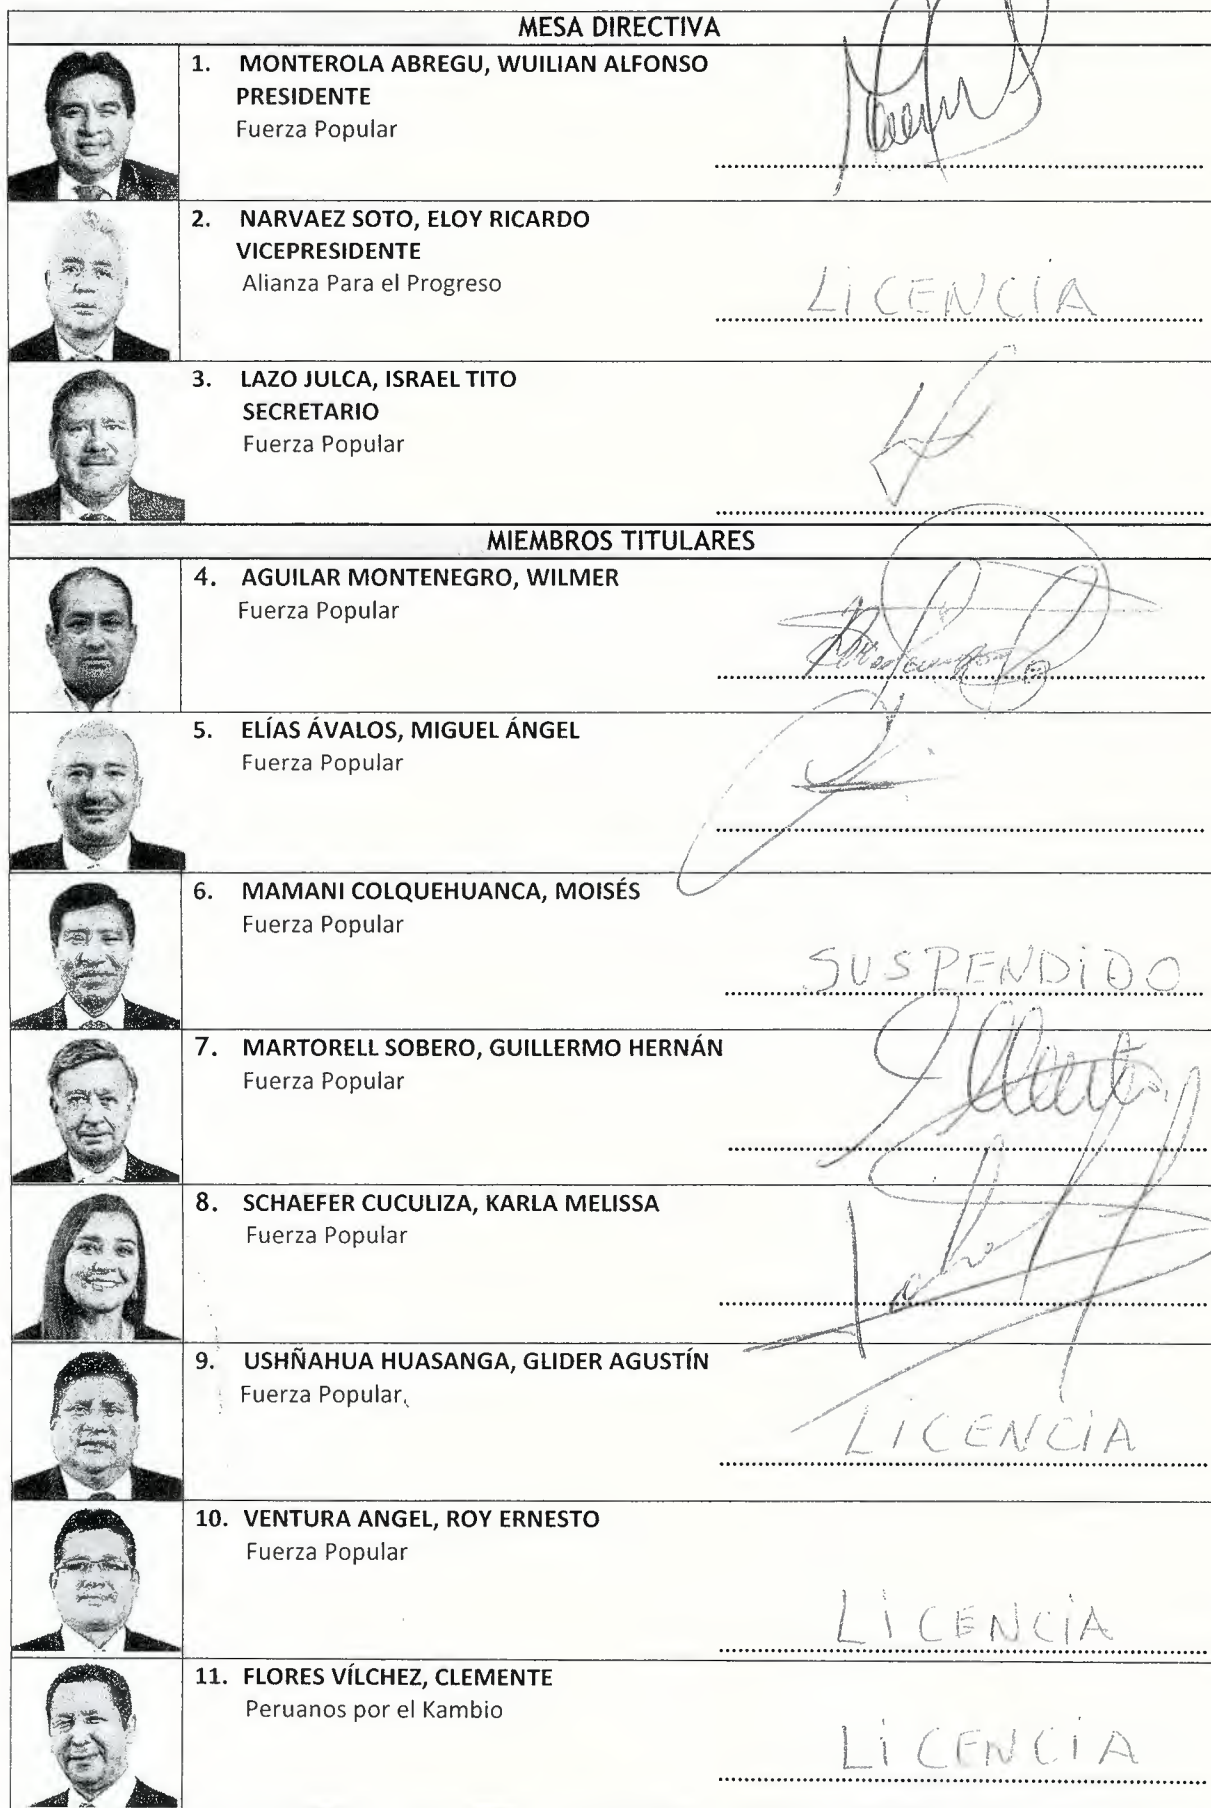 MESA DIRECTIVA
1. MONTEROLA ABREGU, WUILIAN ALFONSO
PRESIDENTE
Fuerza Popular
2. NARVAEZ SOTO, ELOY RICARDO
VICEPRESIDENTE
Alianza Para el Progreso
LiCENCiA
3. LAZO JULCA, ISRAEL TITO
SECRETARIO
Fuerza Popular
MIEMBROS TITULARES
4. AGUILAR MONTENEGRO, WILMER
Fuerza Popular
5. ELÍAS ÁVALOS, MIGUEL ÁNGEL
Fuerza Popular
6. MAMANI COLQUEHUANCA, MOISÉS
Fuerza Popular
SUSPENDiDO
7. MARTORELL SOBERO, GUILLERMO HERNÁN
Fuerza Popular
8. SCHAEFER CUCULIZA, KARLA MELISSA
Fuerza Popular
9. USHÑAHUA HUASANGA, GLIDER AGUSTÍN
Fuerza Popular
LiCENCiA
10. VENTURA ANGEL, ROY ERNESTO
Fuerza Popular
LiCENCiA
11. FLORES VÍLCHEZ, CLEMENTE
Peruanos por el Kambio
LiCENCiA